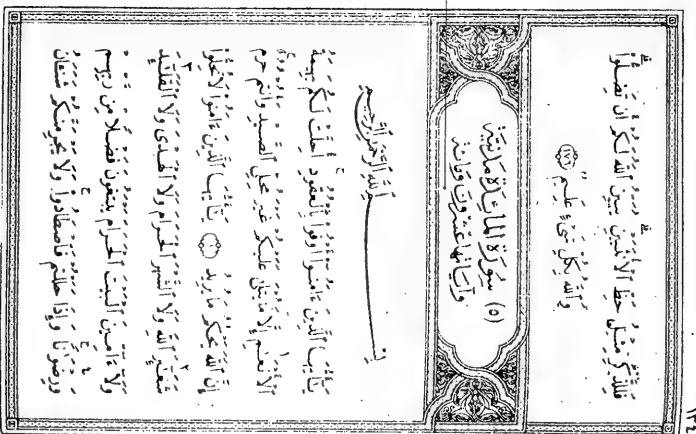 ١٣٤
فَلِلذَّكَرِ مِثْلُ حَظِّ ٱلْأُنثَيَيْنِ يُبَيِّنُ ٱللَّهُ لَكُمْ أَن تَضِلُّوا۟
وَٱللَّهُ بِكُلِّ شَىْءٍ عَلِيمٌۢ ﴿١٧٦﴾
(٥) سُورَةُ المَائِدَةِ مَدَنِيَّة
وَآيَاتُهَا عِشْرُونَ وَمِائَة
بِسْمِ ٱللَّهِ ٱلرَّحْمَٰنِ ٱلرَّحِيمِ
يَٰٓأَيُّهَا ٱلَّذِينَ ءَامَنُوٓا۟ أَوْفُوا۟ بِٱلْعُقُودِ أُحِلَّتْ لَكُم بَهِيمَةُ
ٱلْأَنْعَٰمِ إِلَّا مَا يُتْلَىٰ عَلَيْكُمْ غَيْرَ مُحِلِّى ٱلصَّيْدِ وَأَنتُمْ حُرُمٌ
إِنَّ ٱللَّهَ يَحْكُمُ مَا يُرِيدُ ﴿١﴾ يَٰٓأَيُّهَا ٱلَّذِينَ ءَامَنُوا۟ لَا تُحِلُّوا۟
شَعَٰٓئِرَ ٱللَّهِ وَلَا ٱلشَّهْرَ ٱلْحَرَامَ وَلَا ٱلْهَدْىَ وَلَا ٱلْقَلَٰٓئِدَ
وَلَآ ءَآمِّينَ ٱلْبَيْتَ ٱلْحَرَامَ يَبْتَغُونَ فَضْلًا مِّن رَّبِّهِمْ
وَرِضْوَٰنًا وَإِذَا حَلَلْتُمْ فَٱصْطَادُوا۟ وَلَا يَجْرِمَنَّكُمْ شَنَـَٔانُ